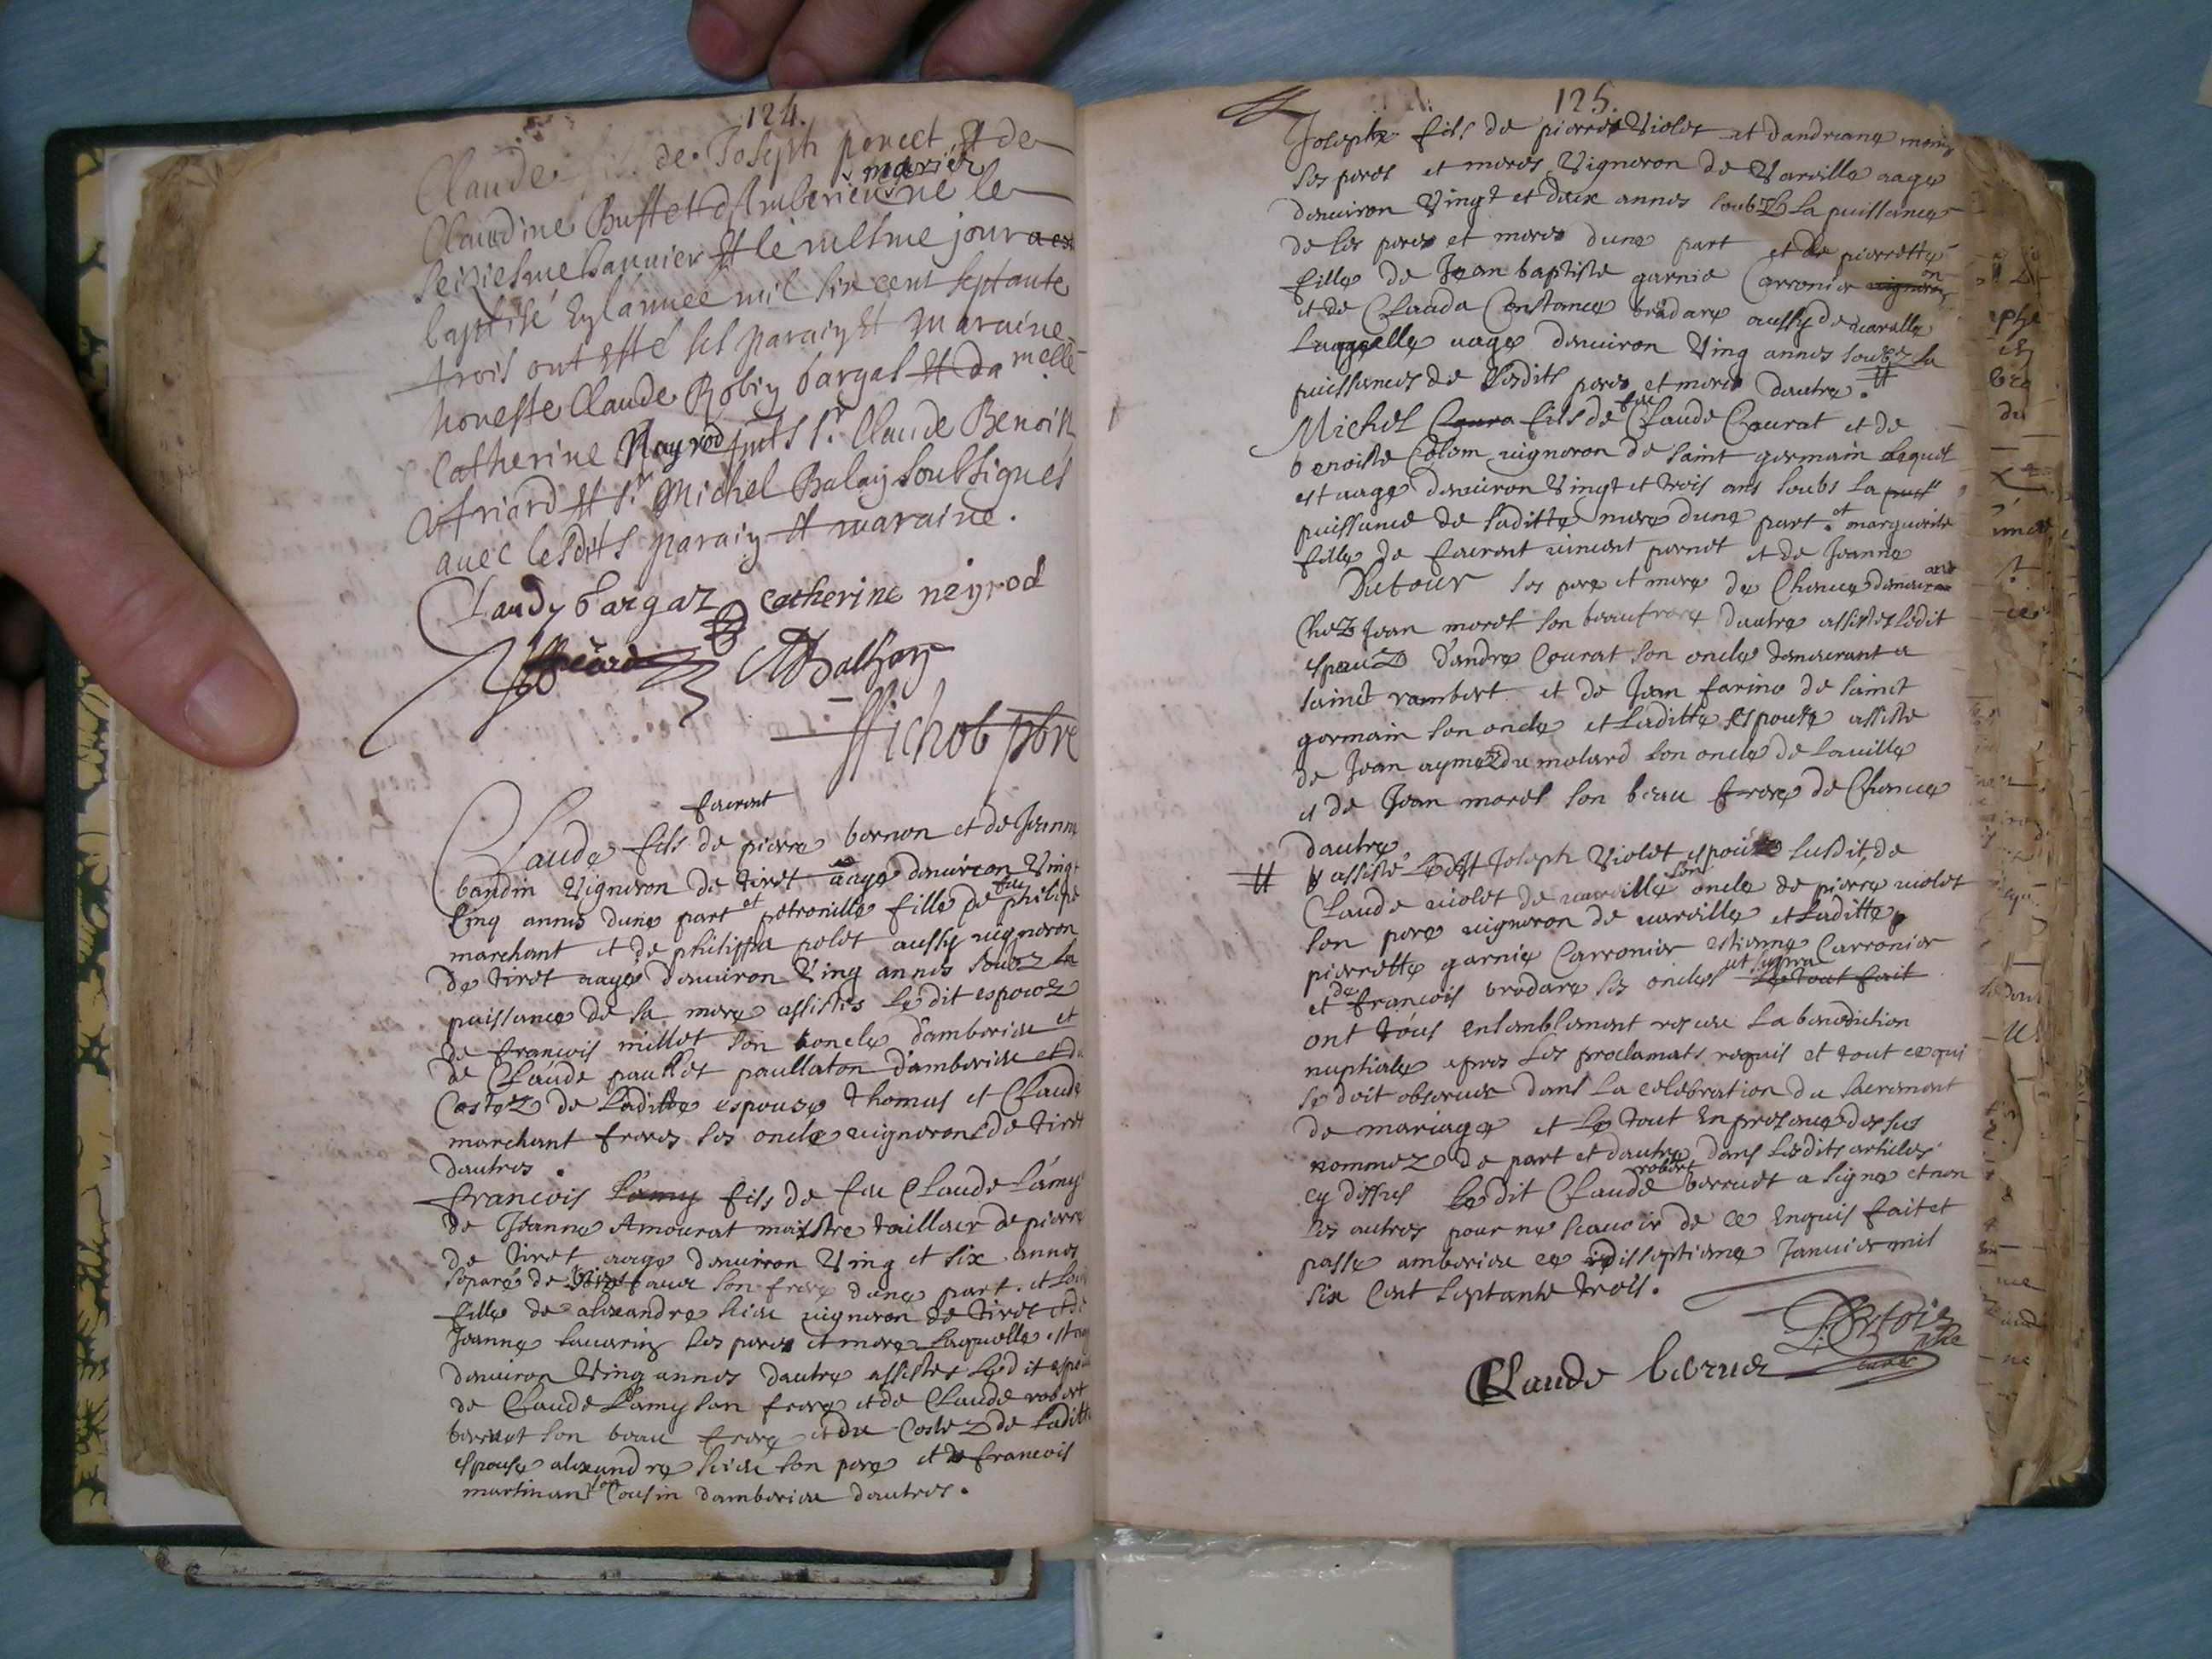 124.
Claude fils de Joseph poncet et de
mariéz
Claudine Buffet d'Amberieu né le
seiziesme Januier et le mesme jour a esté
baptisé En l'année mil six cent septante
trois ont esté ses parain et maraine
honeste Claude Robin bargas et da melle
Catherine Nayrod pnts sr. Claude Benoist
et sr. Michel Balay soubsignés
auec lesdits parain et maraine.
Claudy bargaz Catherine neyrod
MBalhay
Michob pbre
faurent
Claude fils de pierre bernon et de Jeanne
baudin Vigneron de tiret aagé denuiron Vingt
Cinq annés dune part et petronille fille de feu philipe
marchant et de philippa polet aussy vigneron
de tiret aagé denuiron Ving annés soubz la
puissance de sa mere assistés Ledit espouz
de francois millet son oncle d'amberieu et
de Claude paullet paullaton d'amberieu et du
Costez de Laditte espouze thomas et Claude
marchant freres ses oncle vignerons de tiret
dautres.
francois Lamy fils de feu Claude Lamy
de Jeanne Amourat maistre tailleur de pierre
de tiret aagé denuiron Ving et six annés
separé de auec son frere dune part. et
fille de alexandre sieu vigneron de tiret et de
Jeanne sauarin ses peres et mere Laquelle est aagé
denuiron Ving annés dautre assistés Ledit espouz
de Claude Lamy son frere et de Claude robert
berruet son beau frere et du Costez de Laditte
espouse alexandre sieu son pere et de francois
martinant son Cousin d'amberieu dautres.
125.
Joseph fils de pierre Violet et dandreane
ses peres et meres Vigneron de Vareille aagé
denuiron Vingt et deux annés soubz La puissance
de ses peres et meres dune part et de pierrette
fille de Jean baptiste garnie Carronier vigneron
et de Claude Constance brodare aussy de vareille
Laquelle aagé denuiron Ving annés soubz la
puissances de Lesdits peres et meres dautre. #
Michel Coura fils de feu Claude Courat et de
benoiste Colom vigneron de saint germain Lequel
est aagé denuiron Vingt et trois ans soubs La puss
puissance de Laditte mere dune part. et marguerite
fille de faurent vincent pernet et de Jeanne
Dutour ses pere et mere de Chance demeurant
Chez Jean morel son beaufrere dautre assistés Ledit
espouz d'andre Courat son oncle demeurant a
sainct rambert et de Jean farine de sainct
germain son oncle et Laditte Espouze assiste
de Jean aymez du molard son oncle de Lauille
et de Jean morel son beau frere de Chance
dautre
# assisté Ledit Joseph Violet espouz susdit, de
Claude violet de vareille son oncle de pierre violet
son pere vigneron de vareille et Laditte
pierrette garnie Carronier estienne Carronier
et de francois brodare ses oncles ut supra Le tout fait
ont tous ensemblement reçeu La benediction
nuptiale apres Les proclamats requis et tout ce qui
se doit obseruer dans La celebration du sacrement
de mariage et Le tout En presence des sus
nommez de part et dautre dans Lesdits articles
cy dessus Ledit Claude robert berruet a signe et non
Les autres pour ne scauoir de ce Enquis fait et
passé amberieu ce disseptieme Januier mil
six Cent septante trois.
Claude beruet
pbre
curé